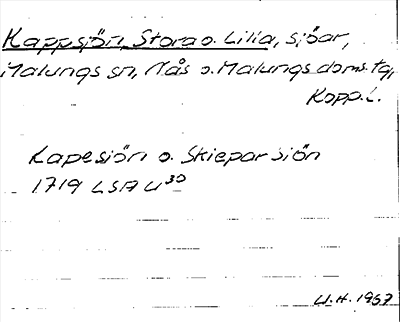 Kappsjön, Stora o. Lilla, sjöar,
Malungs sn, Nås o. Malungs doms. tg,
Kopp. l.
Kapesiön o. Skieparsiön
1719 LSA U³⁰
U.H. 1967